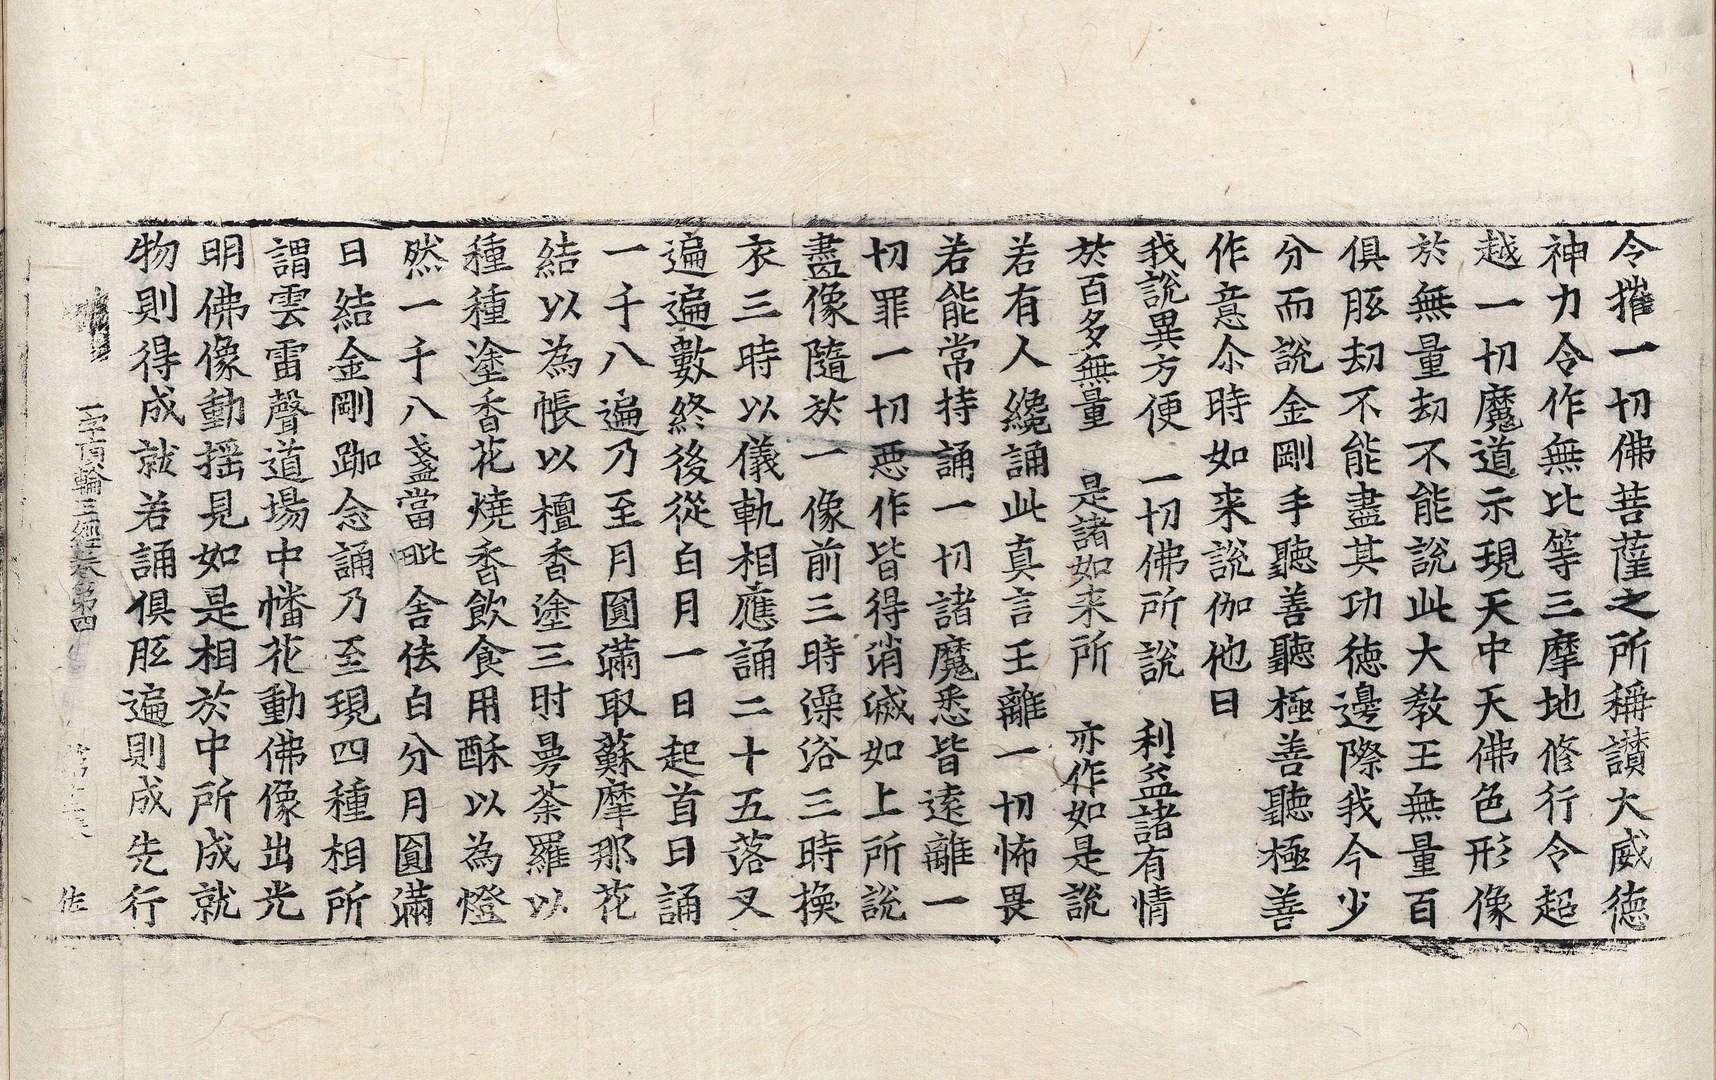 令摧一切佛菩薩之所稱讃大威徳
神力令作無比等三摩地修行令超
越一切魔道示現天中天佛色形像
於無量劫不能說此大教王無量百
俱胝劫不能盡其功徳邊際我今少
分而說金剛手聽善聽極善聽極善
作意尒時如来說伽他曰
我說異方便　一切佛所說　利益諸有情
於百多無量　是諸如来所　亦作如是說
若有人纔誦此真言王離一切怖畏
若能常持誦一切諸魔悉皆遠離一
切罪一切惡作皆得消滅如上所說
畫像隨於一像前三時澡浴三時換
衣三時以儀軌相應誦二十五落叉
遍遍數終後從白月一日起首日誦
一千八遍乃至月圓滿取蘇摩那花
結以為帳以檀香塗三时曼荼羅以
種種塗香花燒香飲食用酥以為燈
然一千八盞當毗舍佉白分月圓滿
日結金剛跏念誦乃至現四種相所
謂雲雷聲道場中幡花動佛像出光
明佛像動揺見如是相於中所成就
物則得成就若誦俱胝遍則成先行
一字頂輪王經卷第四　佐